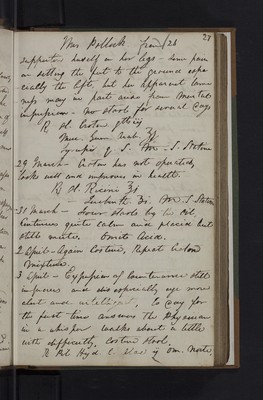 27
Mrs Pollock from / 26
supporters herself on her legs - some pain
in setting the feet to the ground espe
cially the left, but her apparent lame
ness may in part arise from Mental
impressions - No stool for several days
R Ol. Croton
Muc. Gum Arab
Syrup
29 March - Croton has not operated,
looks well and improves in health.
R Ol Ricini
31 March - Four Stools by the Oil,
Continues quite calm and placid but
still mute. Omitt
2 April - Again Costive, Repeat Croton
Mixture.
3 April - Expression of Countenance still
improves and especially eye more
alert and intelligent, To day for
the first time answers the Physician
in a whisper walks about a little
with difficulty, Costive Stool.
R Pil Hyd